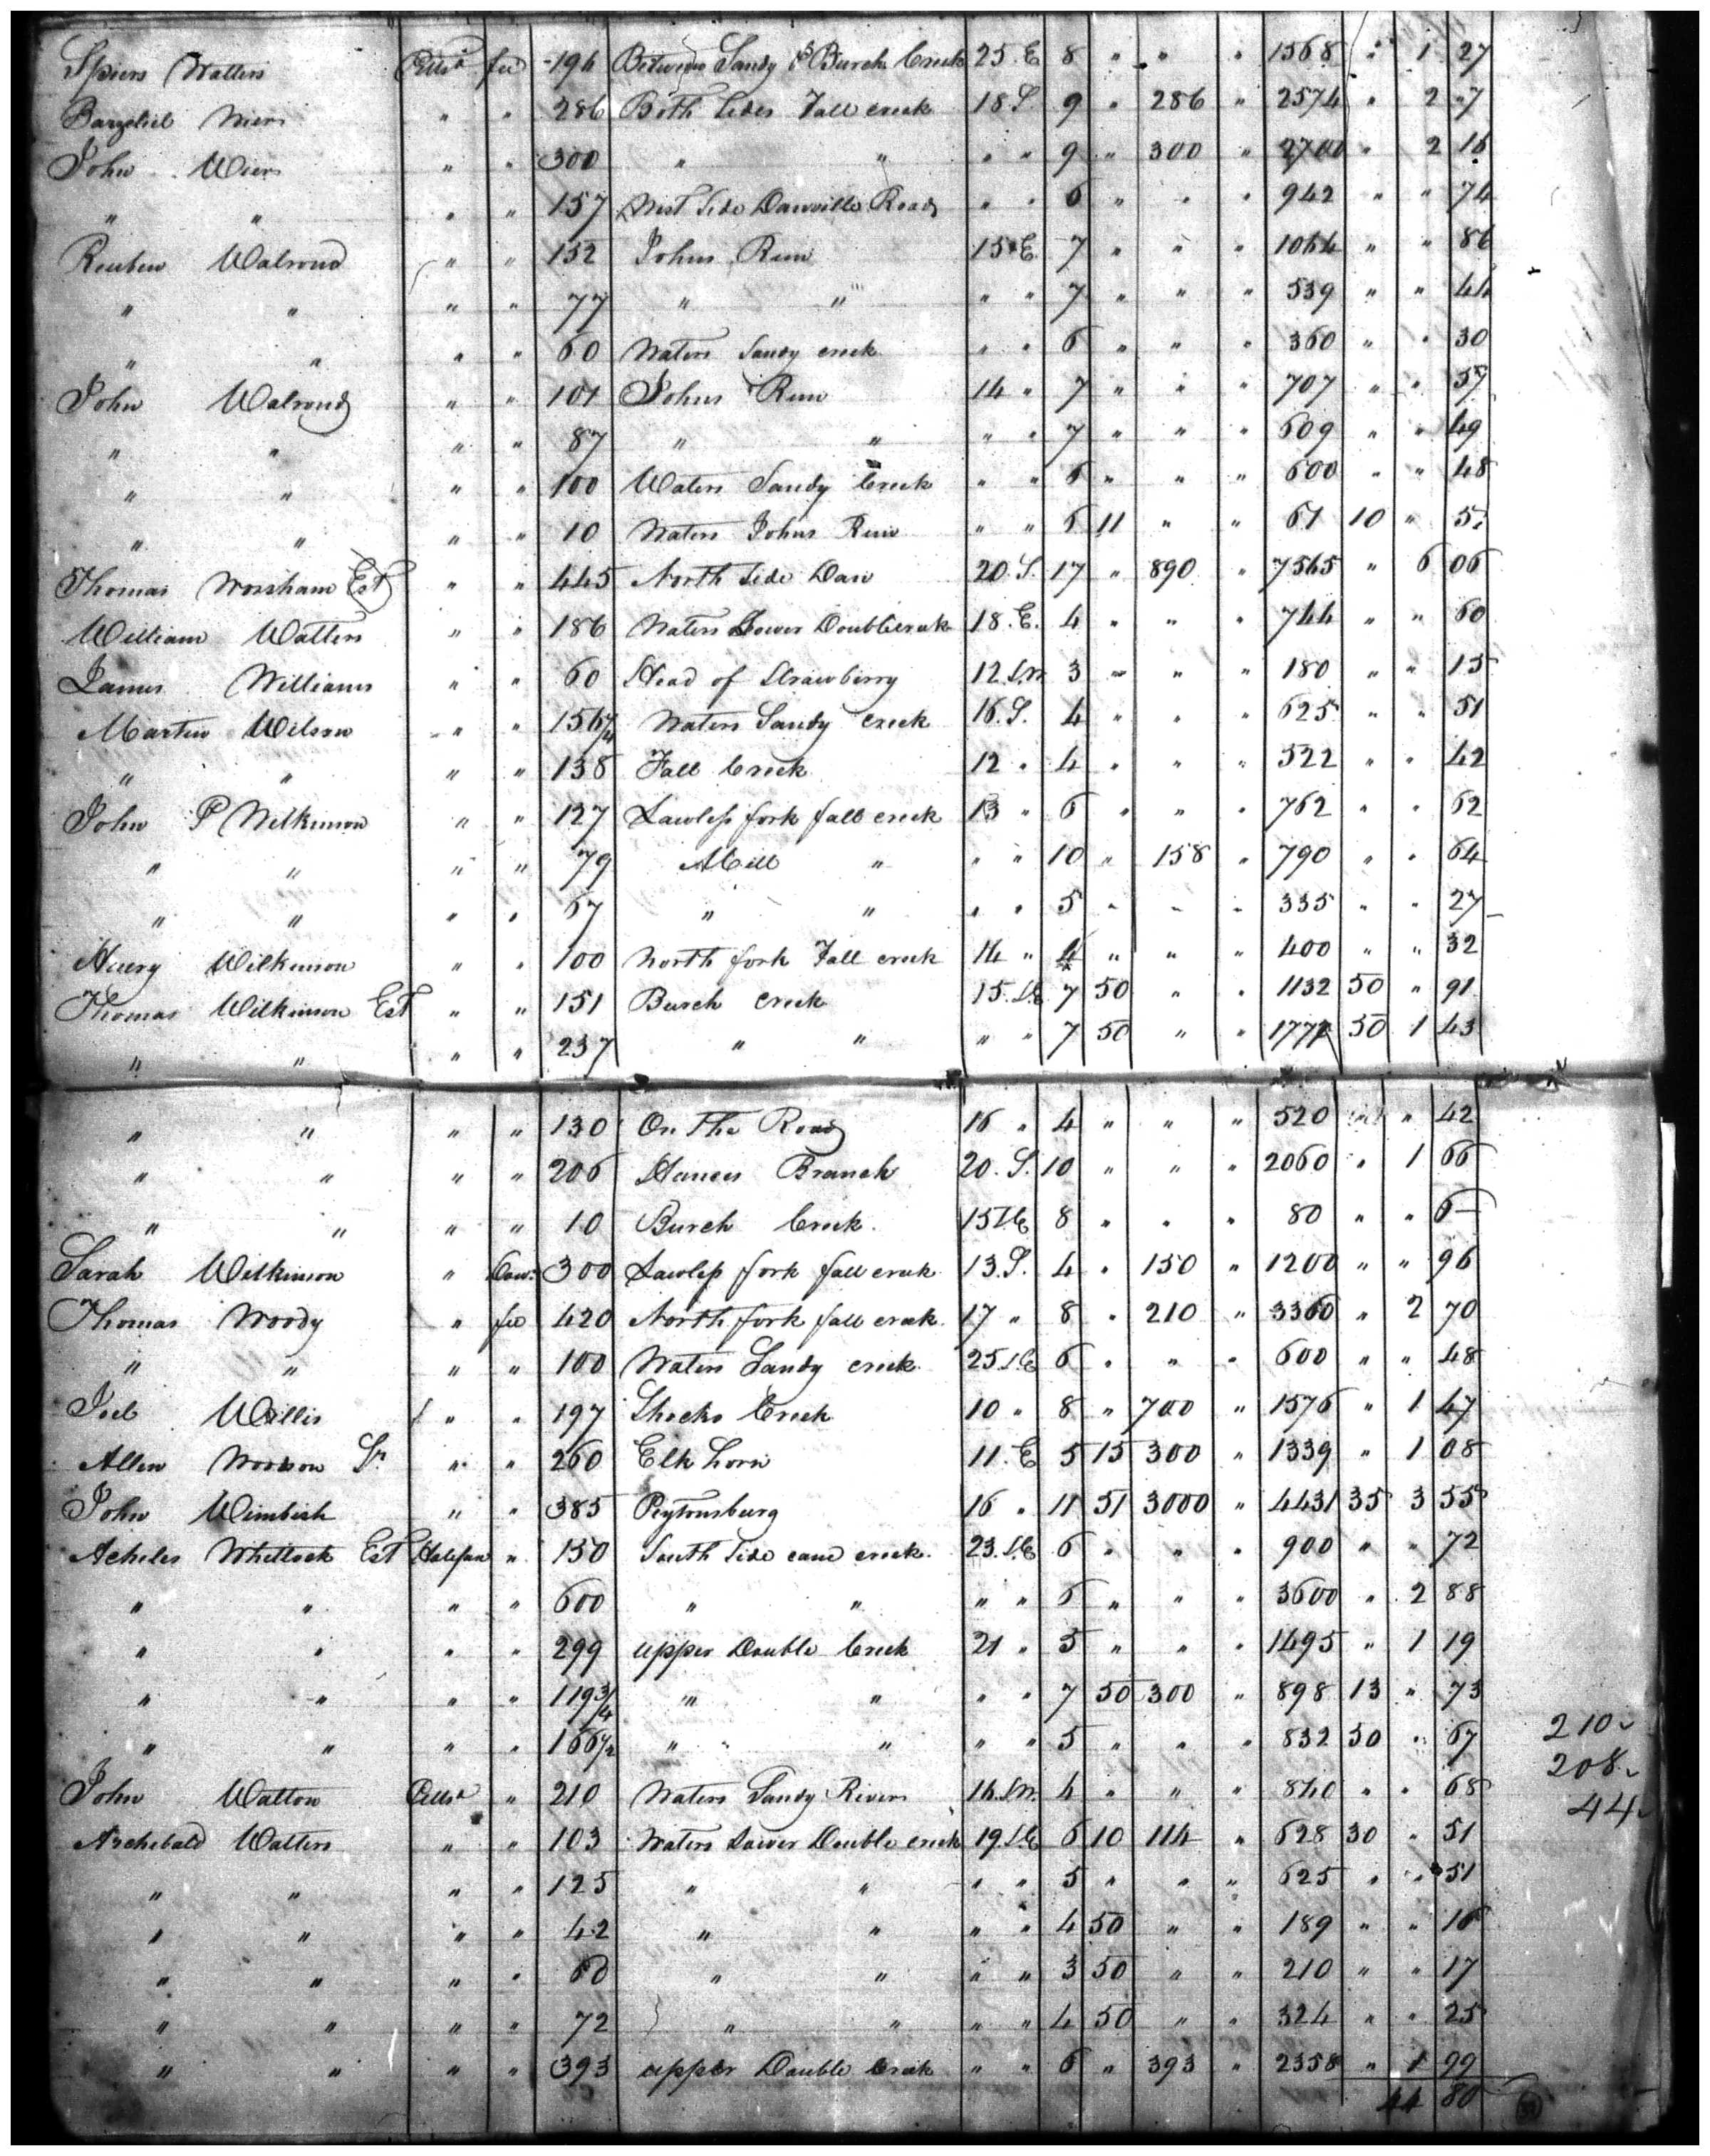 Spiers Walters Pittsa fee 196 Between Sandy & Burch Creek 25.E 8 " " " 1568 " 1 27
Barzeliel Wiers " " 286 Both Sides Fall creek 18 S. 9 " 286 " 2574 " 2 "7
John Wiers " " 300 " " " " 9 " 300 " 2700 " 2 16
" " " " 157 West Side Danville Road " " 6 " " " 942 " " 74
Reuben Walrond " " 152 Johns Run 15 E. 7 " " " 1064 " " 86
" " " " 77 " " " " 7 " " " 539 " " 44
" " " " 60 Waters Sandy creek " " 6 " " " 360 " " 30
John Walrond " " 101 Johns Run 14 " 7 " " " 707 " " 57
" " " " 87 " " " " 7 " " " 609 " " 49
" " " " 100 Waters Sandy Creek " " 6 " " " 600 " " 48
" " " " 10 Waters Johns Run " " 6 11 " " 61 10 " 5
Thomas Worsham Est " " 445 North Side Dan 20.S. 17 " 890 " 7565 " 6 06
William Watters " " 186 Waters Lower Double creek 18.E. 4 " " " 744 " " 60
James Williams " " 60 Head of Strawberry 12 S.W 3 " " " 180 " " 15
Martin Wilson " " 156 1/4 Waters Sandy creek 16.S. 4 " " " 625 " " 51
" " " " 138 Fall Creek 12 " 4 " " " 522 " " 42
John P Wilkinson " " 127 Lawless fork fall creek 13 " 6 " " " 762 " " 62
" " " " 79 Mill " " " 10 " 158 " 790 " " 64
" " " " 67 " " " " 5 " " " 335 " " 27
Henry Wilkinson " " 100 North fork Fall creek 14 " 4 " " " 400 " " 32
Thomas Wilkinson Est " " 151 Burch creek 15.S.E 7 50 " " 1132 50 " 91
" " " " 237 " " " " 7 50 " " 1777 50 1 43
" " " " 130 On The Road 16 " 4 " " " 520 " " 42
" " " " 206 Hances Branch 20.S. 10 " " " 2060 " 1 66
" " " " 10 Burch Creek. 15 S.E 8 " " " 80 " " 6
Sarah Wilkinson " Dow: 300 Lawless fork fall creek 13.S. 4 " 150 " 1200 " " 96
Thomas Woody " fee 420 North fork fall creek 17 " 8 " 210 " 3360 " 2 70
" " " " 100 Waters Sandy creek 25 S.E 6 " " " 600 " " 48
Joel Willis " " 197 Shocko Creek 10 " 8 " 700 " 1576 " 1 47
Allen Woodson Sr " " 260 Elk horn 11.E 5 15 300 " 1339 " 1 08
John Wimbish " " 385 Peytonsburg 16 " 11 51 3000 " 4431 35 3 55
Acheles Whitlock Est Halifax " 150 South Side cane creek. 23.S.E 6 " " " 900 " " 72
" " " " 600 " " " " 6 " " " 3600 " 2 88
" " " " 299 upper Double Creek 21 " 5 " " " 1495 " 1 19
" " " " 119 3/4 " " " " 7 50 300 " 898 13 " 73
" " " " 166 1/2 " " " " 5 " " " 832 50 " 67 210
208
John Walton Pittsa " 210 Waters Sandy River 14 S.W. 4 " " " 840 " " 68
44
Archebald Walters " " 103 Waters Lower Double creek 19.S.E 6 10 114 " 628 30 " 51
" " " " 125 " " " " 5 " " " 625 " " 51
" " " " 42 " " " " 4 50 " " 189 " " 16
" " " " 60 " " " " 3 50 " " 210 " " 17
" " " " 72 " " " " 4 50 " " 324 " " 25
" " " " 393 upper Double Creek " " 6 " 393 " 2358 " 1 99
44 80